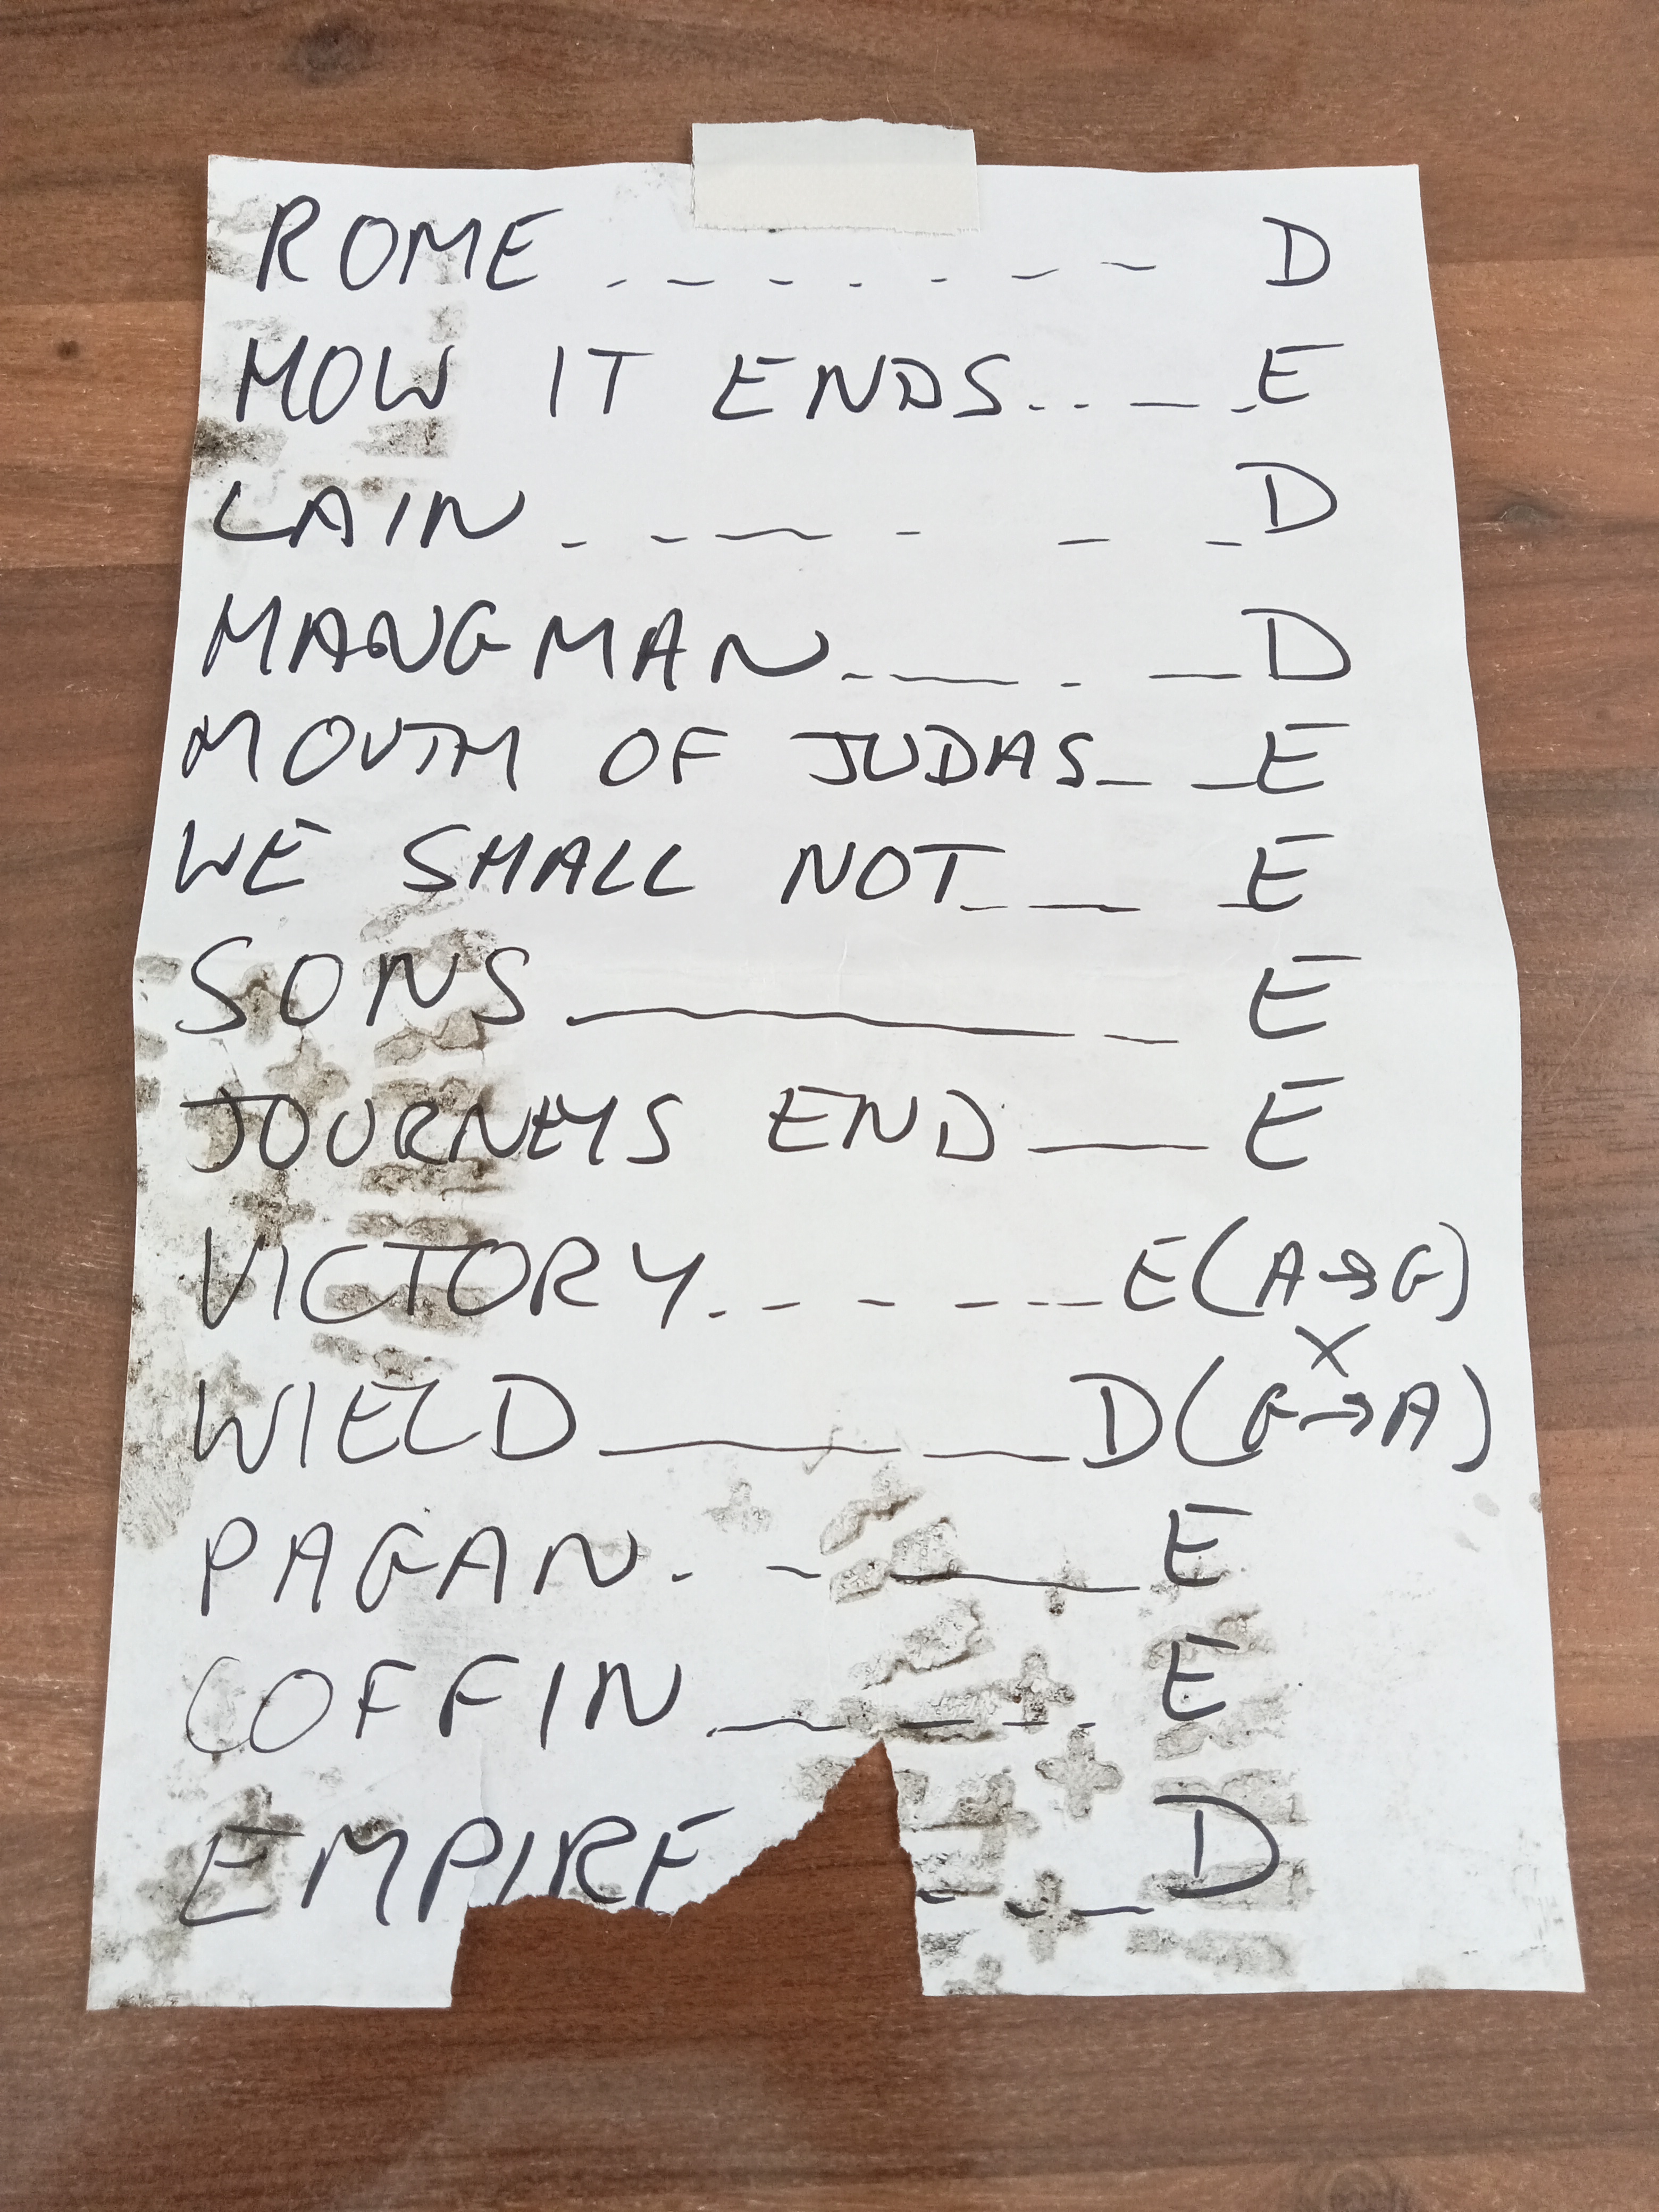 ROME . _ _ . . _ _ D
HOW IT ENDS . . _ _ . E
CAIN . _ _ _ _ _ D
HANGMAN . _ . _ D
MOUTH OF JUDAS _ _ E
WE SHALL NOT _ _ _ E
SONS _ _ E
JOURNEYS END _ E
VICTORY . _ _ _ _ E (A→G)
X
WIELD _ _ D (G→A)
PAGAN . _ _ E
COFFIN . _ _ _ . E
EMPIRE _ _ _ D